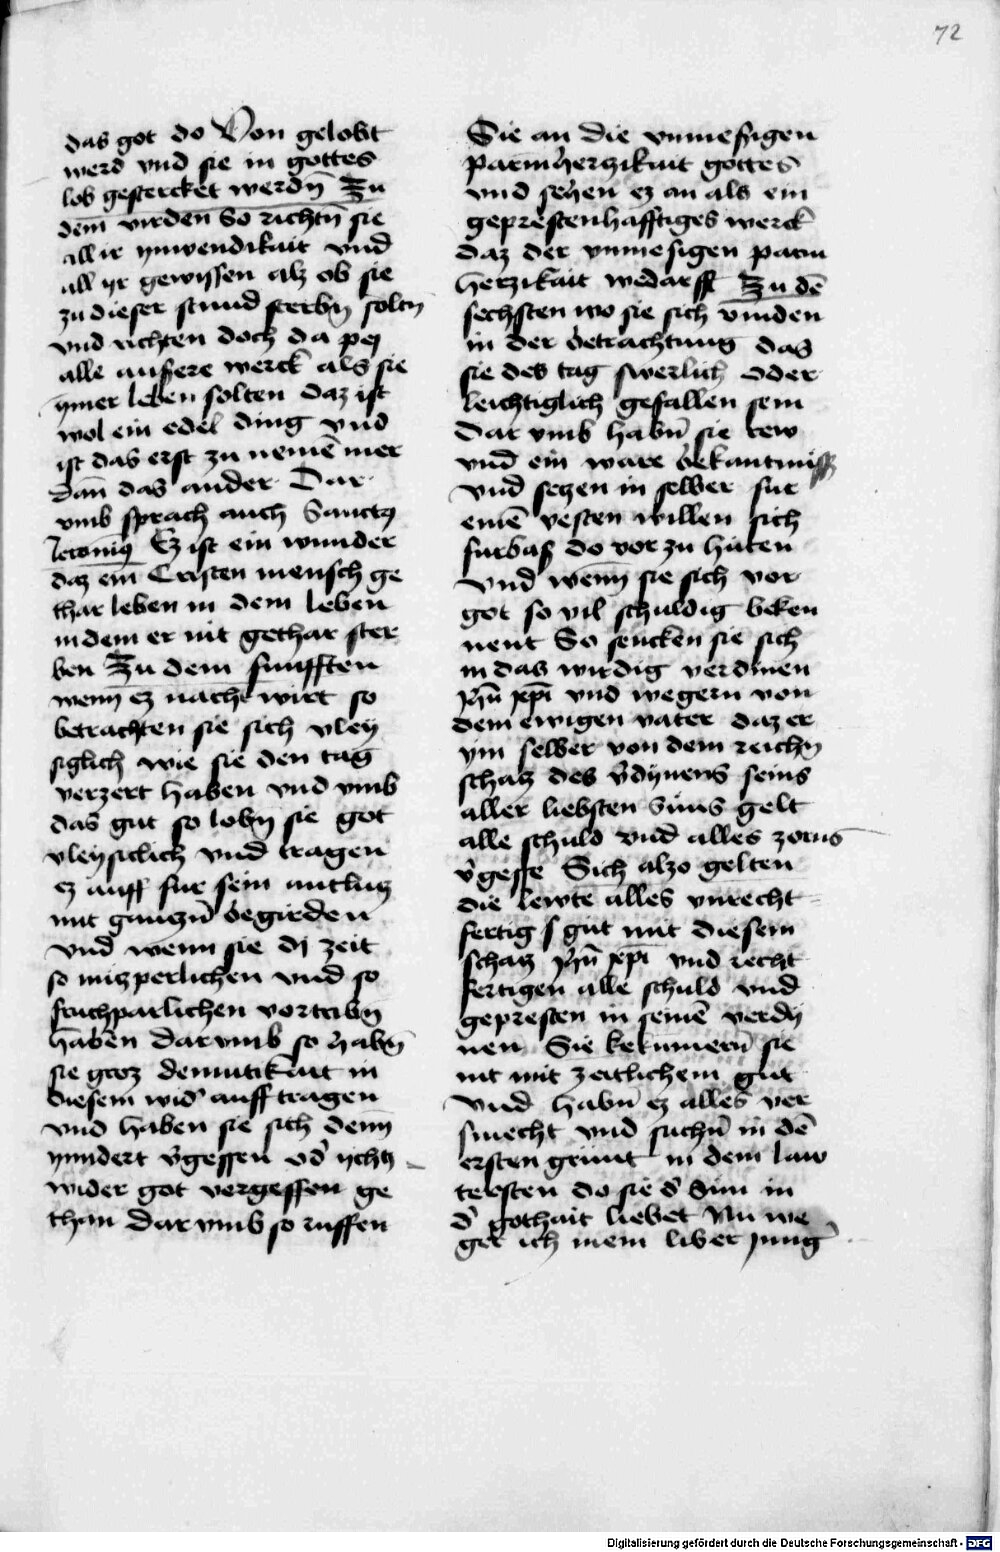 72
das got do Von gelobt
werd vnd sie in gottes
lob gestercket werdn̄ Zu
dem̄ virden̄ So richtn̄ sie
all ir ynwendikait vnd
all yr gewyssen alz ob sie
zu dieser stund sterbn̄ soltn̄
vnd richten doch da pey
alle ausere werck als sie
ymer leben solten daz ist
wol ein edel ding vnd
ist das erst zu nemē mer
dan̄ das ander Dar
vmb sprach auch Sanctꝯ
Ieronimꝯ Ez ist ein wunder
daz ein Cristen mensch ge
thar leben in dem leben
in dem er nit gethar ster
ben Zu dem funfften
wenn̄ ez nacht wirt so
betrachten sie sich vley
siglich wie sie den tag
verzert haben vnd vmb
das gut so lobn̄ sie got
vleysiclich vnd tragen
ez auff fur sein antlucz
mit gancz̄n begirden
vnd wenn sie dy zeit
so miczperlichen vnd so
fruchparlichen vortribn̄
haben dar vmb so habn̄
sie groz demutikait in
diesem wid' auff tragen
vnd haben sie sich denn̄
yndert v̓gessen od' ychcz
wider got vergessen ge
than Dar vmb so ruffen
Sie an die vnmessigen
parmherczikait gottes
vnd sehen ez an als ein
geprestenhafftiges werck
daz der vnmesigen parm
herzikait wedarff Zu dē
sechsten wo sie sich vinden
in der betrachtung das
sie des tag swerlich oder
leichtiglich gefallen sein
Dar vmb habn̄ sie rew
vnd ein ware bekantniss
vnd seczen in selber fur
einē vesten willen sich
furbas do vor zu hüten
Vnd wenn̄ sie sich vor
got so vil schuldig beken
nent So sencken sie sich
in das wirdig verdinen
jhū xpi vnd wegern von
dem ewigen vater daz er
ym selber von dem reichn̄
schacz des v̓dynens seins
aller liebsten Suns gelt
alle schuld vnd alles zorns
v̓gesse Sich alzo gelten
die lewte alles vnrecht
fertigs gut mit diesem
schacz jhū xpi vnd recht
fertigen alle schuld vnd
gepresten in seinē verdy
nen Sie bekumern̄ sie
nit mit zeitlichem gut
vnd habn̄ ez alles ver
smecht vnd suchn̄ in dē
ersten grunt in dem law
tersten do sie d' Sun in
d' gothait liebet Nu we
ger ich mein liber Jung'
Digitalisierung gefördert durch die Deutsche Forschungsgemeinschaft - DFG